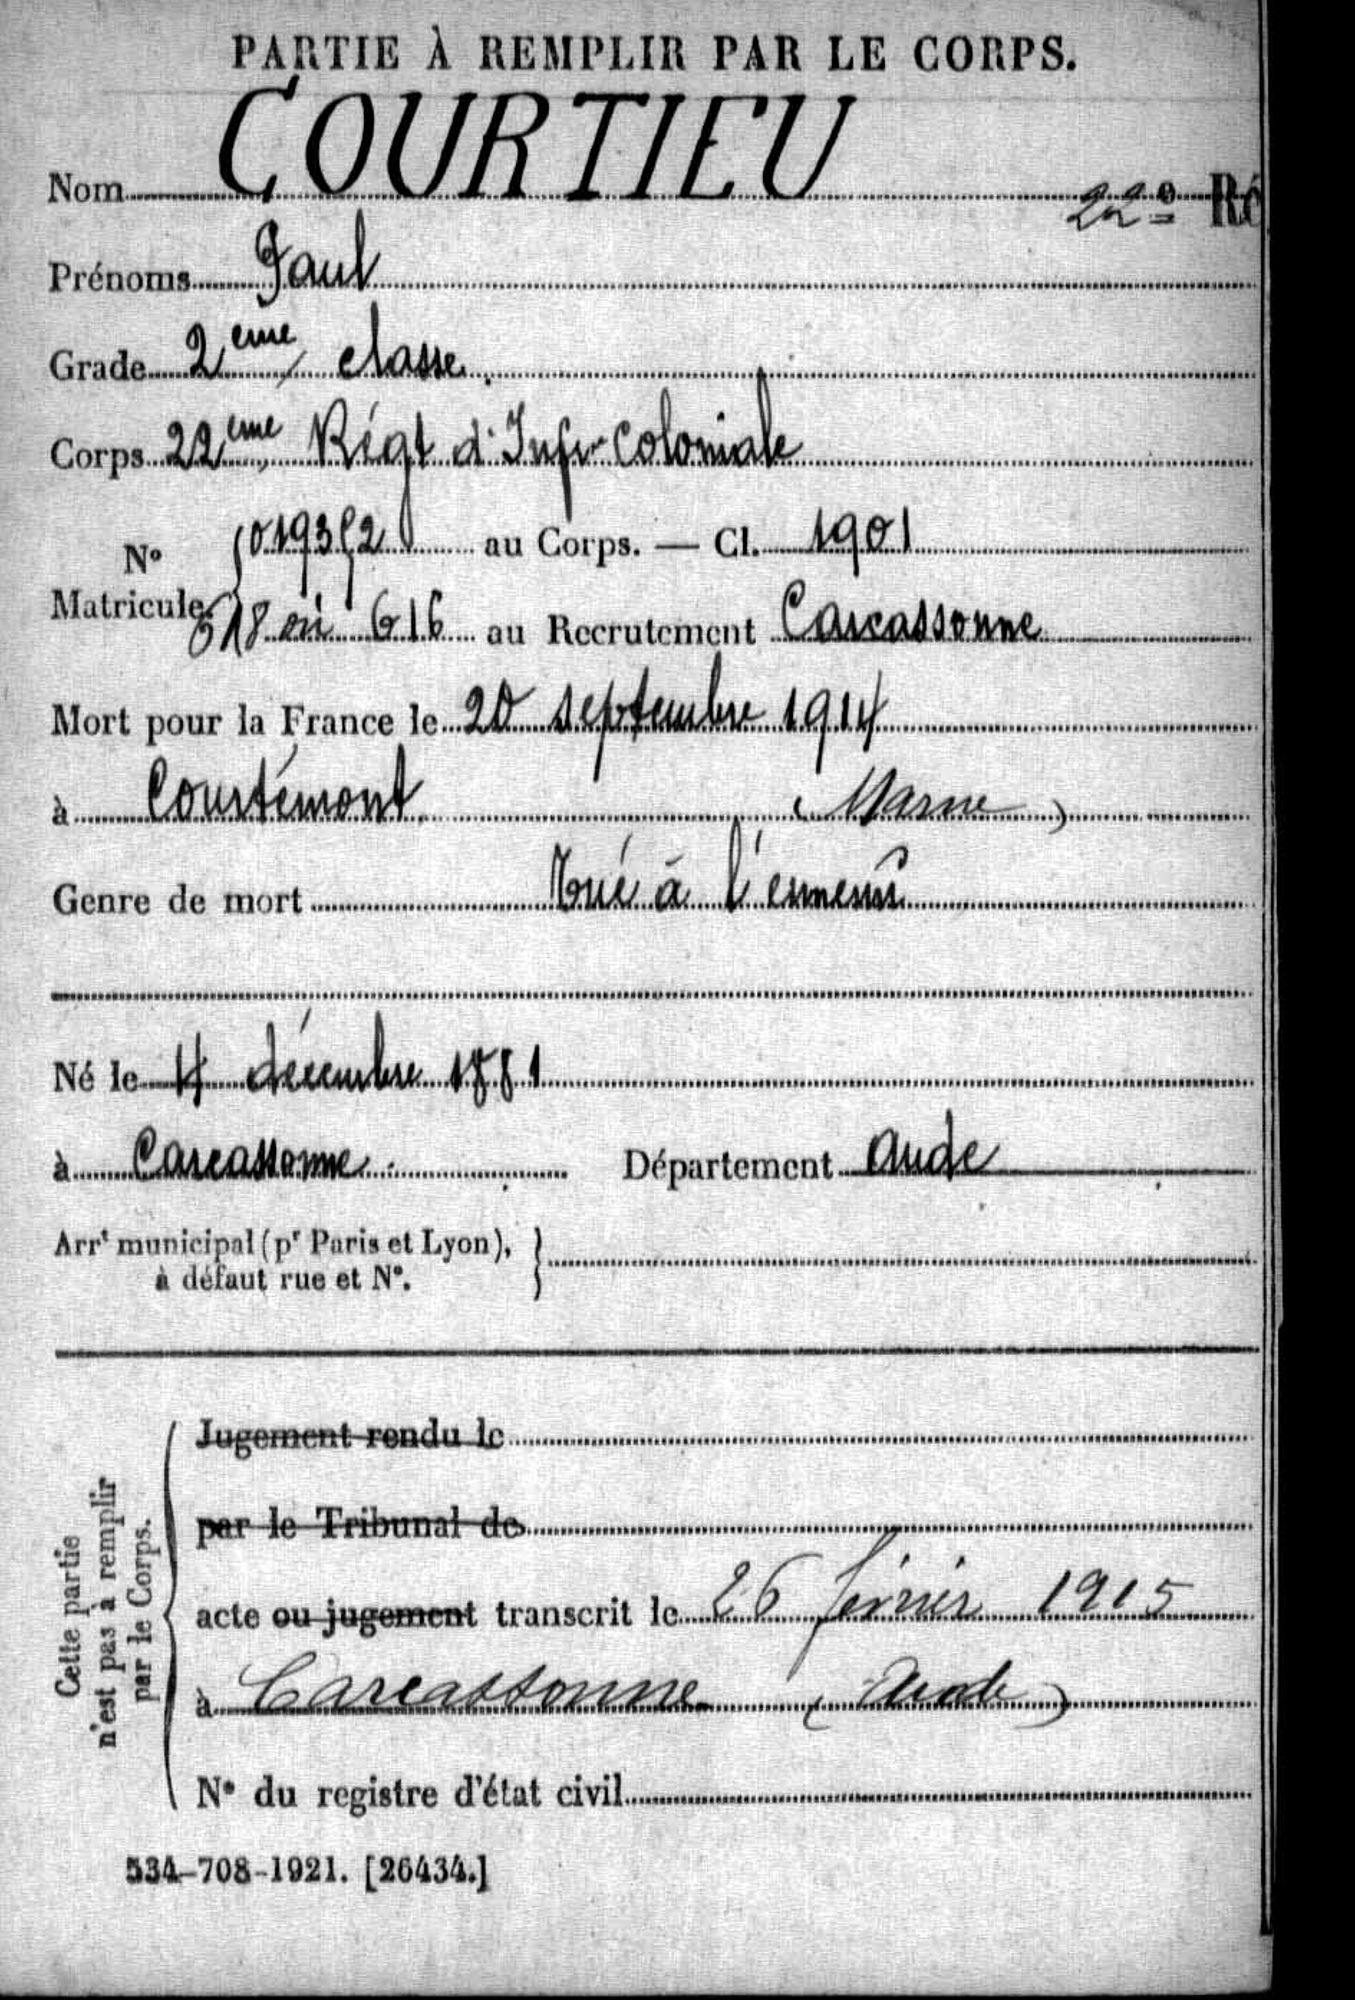 PARTIE À REMPLIR PAR LE CORPS.
Nom COURTIEU
22e Ré
Prénoms Paul
Grade 2ème classe.
Corps 22ème Régt d'Infie Coloniale
No Matricule
019352 au Corps. — Cl. 1901
618 ou 616 au Recrutement Carcassonne
Mort pour la France le 20 septembre 1914
à Courtémont (Marne)
Genre de mort Tué à l'ennemi
Né le 4 décembre 1881
à Carcassonne. Département Aude
Arrt municipal (pr Paris et Lyon),
à défaut rue et No.
Cette partie
n'est pas à remplir
par le Corps.
Jugement rendu le
par le Tribunal de
acte ou jugement transcrit le 26 février 1915
à Carcassonne (Aude)
No du registre d'état civil
534-708-1921. [26434.]